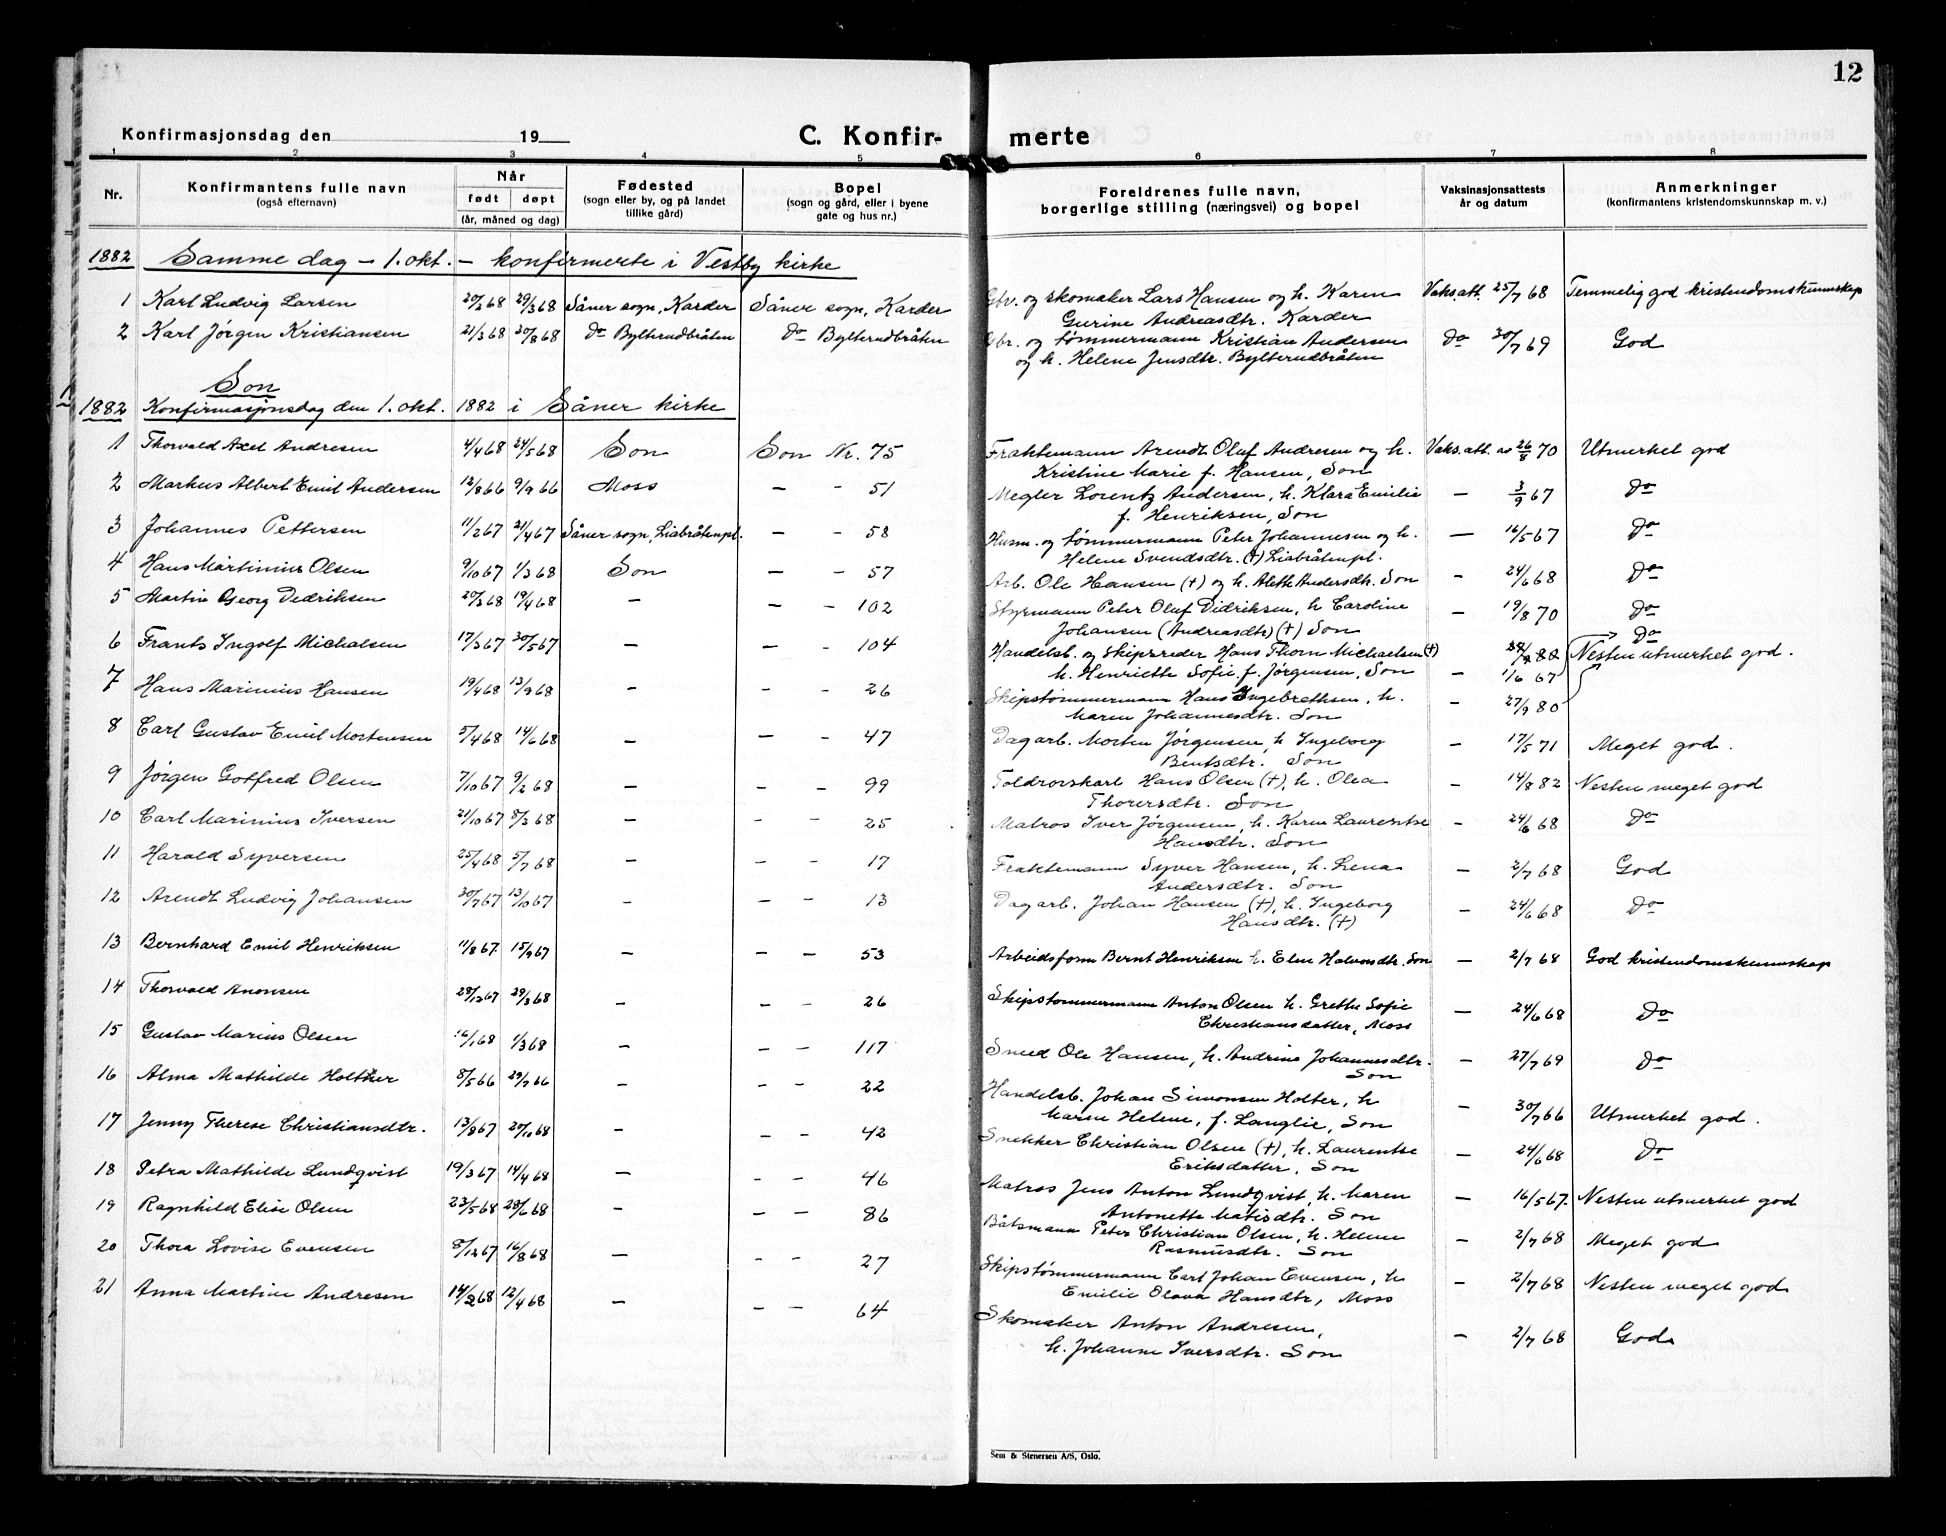 12
Konfirmasjonsdag den 19
C. Konfir- merte
1 2 3 4 5 6 7 8
Nr.
Konfirmantens fulle navn
(også efternavn)
Når
født døpt
(år, måned og dag)
Fødested
(sogn eller by, og på landet
tillike gård)
Bopel
(sogn og gård, eller i byene
gate og hus nr.)
Foreldrenes fulle navn,
borgerlige stilling (næringsvei) og bopel
Vaksinasjonsattests
år og datum
Anmerkninger
(konfirmantens kristendomskunnskap m. v.)
1882 Samme dag – 1. okt. – konfirmerte i Vestby kirke
1 Karl Ludvig Larsen 20/2 68 29/3 68 Såner sogn, Karder Såner sogn, Karder Gbr. og skomaker Lars Hansen og h. Karen Vaks.att. 25/7 68 Temmelig god kristendomskunnskap
Gurine Andreasdtr. Karder
2 Karl Jørgen Kristiansen 21/3 68 30/8 68 do Bylterudbråten do Bylterudbråten Gbr. og tømmermann Kristian Andersen do 30/7 69 God
og h. Helene Jensdtr. Bylterudbråten
Son
1882 Konfirmasjonsdag den 1. okt. 1882 i Såner kirke
1 Thorvald Axel Andresen 4/4 68 24/5 68 Son Son Nr. 75 Fraktemann Arendt Oluf Andresen og h. Vaks.att. av 26/8 70 Utmerket god
Kristine Marie f. Hansen, Son
2 Markus Albert Emil Andersen 12/8 66 9/9 66 Moss – - 51 Megler Lorentz Andersen, h. Klara Emilie – 3/9 67 do
f. Henriksen, Son
3 Johannes Pettersen 11/2 67 21/4 67 Såner sogn, Liabråtenpl. – - 58 Husm. og tømmermann Peter Johannesen og h. – 16/5 67 do
Helene Svendsdtr. (†) Liabråtenpl.
4 Hans Martinius Olsen 9/10 67 1/3 68 Son – - 57 Arb. Ole Hansen (†) og h. Aleth. Andersdtr. Son – 24/6 68 do
5 Martin Georg Dedriksen 20/3 68 19/4 68 – – - 102 Styrmann Peter Oluf Didriksen, h Caroline – 19/8 70 do
Johansen (Andreasdtr) (†) Son do
6 Frants Ingolf Michalsen 17/3 67 30/5 67 – – - 104 Handelsb. og Skipsreder Hans Thorn Michaelsen (†) Nesten utmerket god.
h. Henriette Sofie f. Jørgensen, Son – 1/6 67
7 Hans Marinius Hansen 19/4 68 13/9 68 – – - 26 Skipstømmermann Hans Ingebrethsen, h. – 27/9 80
Maren Johannesdtr. Son
8 Carl Gustav Emil Mortensen 5/4 68 14/6 68 – – - 47 Dagarb. Morten Jørgensen, h Ingeborg – 17/5 71 Meget god.
Bentsdtr. Son
9 Jørgen Gotfred Olsen 7/10 67 9/2 68 – – - 99 Toldrorskarl Hans Olsen (†), h. Olea – 14/8 82 Nesten meget god
Thorersdtr. Son
10 Carl Marinius Iversen 21/10 67 8/3 68 – – - 25 Matros Iver Jørgensen, h. Karen Laurentse – 24/6 68 do
Hansdtr. Son
11 Harald Syversen 25/4 68 5/7 68 – – - 17 Fraktemann Syver Hansen, h. Lena – 2/7 68 God
Andersdtr. Son
12 Arendt Ludvig Johansen 30/7 67 13/10 67 – – - 13 Dagarb. Johan Hansen (†), h. Ingeborg – 24/6 68 do
Hansdtr. (†)
13 Bernhard Emil Henriksen 11/8 67 15/9 67 – – - 53 Arbeidsform Bernt Henriksen h. Elen Halvorsdtr. Son – 2/7 68 God kristendomskunnskap
14 Thorvald Anonsen 28/12 67 29/3 68 – – - 26 Skipstømmermann Anton Olsen h. Grethe Sofie – 24/6 68 do
Christiansdatter, Moss
15 Gustav Marius Olsen 16/1 68 1/3 68 – – - 117 Smed Ole Hansen, h. Andrine Johannesdtr. – 27/7 69 do
Son
16 Alma Mathilde Holther 8/5 66 29/7 66 – – - 22 Handelsb. Johan Simonsen Holter, h – 30/7 66 Utmerket god.
Maren Helene, f. Langlie, Son
17 Jenny Therese Christiansdtr. 13/8 67 20/10 68 – – - 42 Snekker Christian Olsen (†), h. Laurentse – 24/6 68 do
Eriksdatter, Son
18 Petra Mathilde Lundqvist 19/3 67 14/4 68 – – - 46 Matros Jens Anton Lundqvist, h. Maren – 16/5 67. Nesten utmerket god
Antonette Matisdtr. Son
19 Ragnhild Elise Olsen 23/5 68 28/6 68 – – - 86 Båtsmann Peter Christian Olsen, h. Helene – 2/7 68 Meget god
Rasmusdtr. Son
20 Thora Lovise Evensen 8/12 67 16/8 68 – – - 27 Skipstømmermann Carl Johan Evensen, h – 2/7 68 Nesten meget god
Emilie Olava Hansdtr, Moss
21 Anna Martine Andresen 14/2 68 12/4 68 – – - 64 Skomaker Anton Andresen, – 2/7 68 God
h. Johanne Iversdtr. Son
Sem & Stenersen A/S, Oslo.